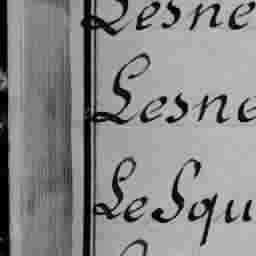 Lesne
Lesne
LeSqu